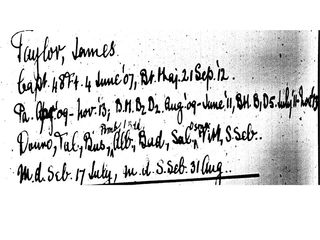 Taylor, James.
Capt. 48 Ft. 4 June '07, Bt. Maj. 21 Sep. '12.
Pa. Apr '09 - Nov. '13; B.M. B2 D2. Aug '09 - June '11, BM. B1 D5. July '11 -
Douro, Tal, Bus, Alb, Bad, Sal, Vit, S.Seb.
m.d. Seb. 17 July, m.d. S.Seb. 31 Aug.